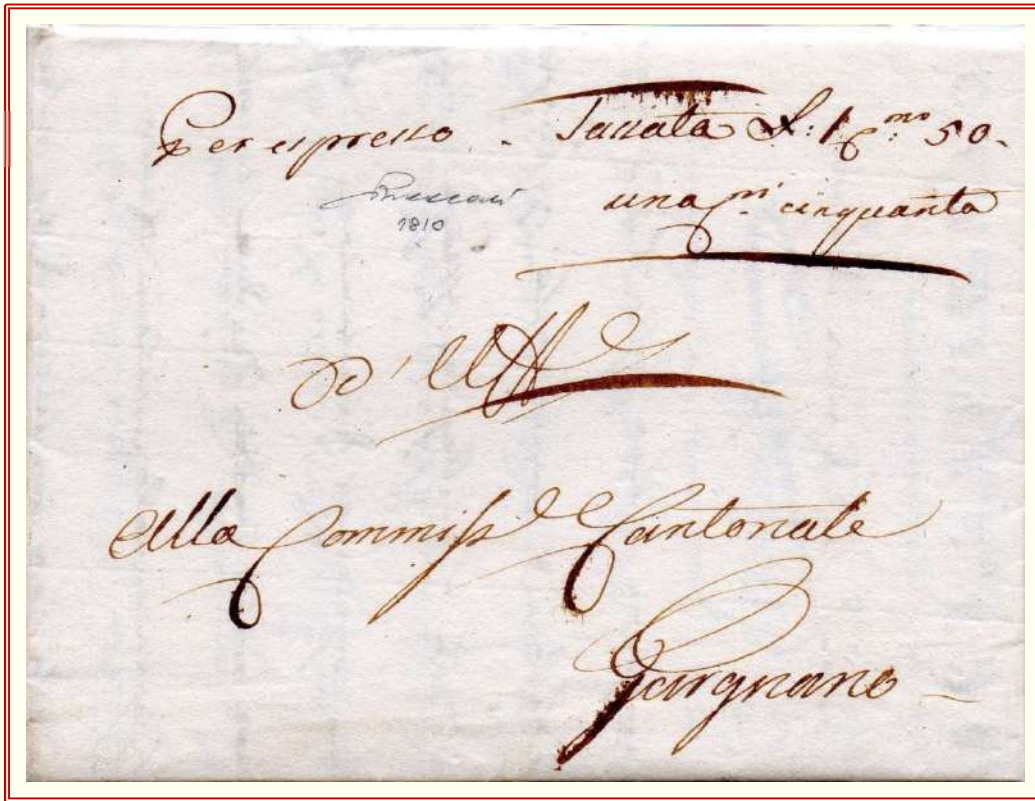 Per espresso - Tassata L: 1 C.mi 50 -
1810
una C.mi cinquanta
d'Uff.
Alla Commiss.e Cantonale
Gargnano -